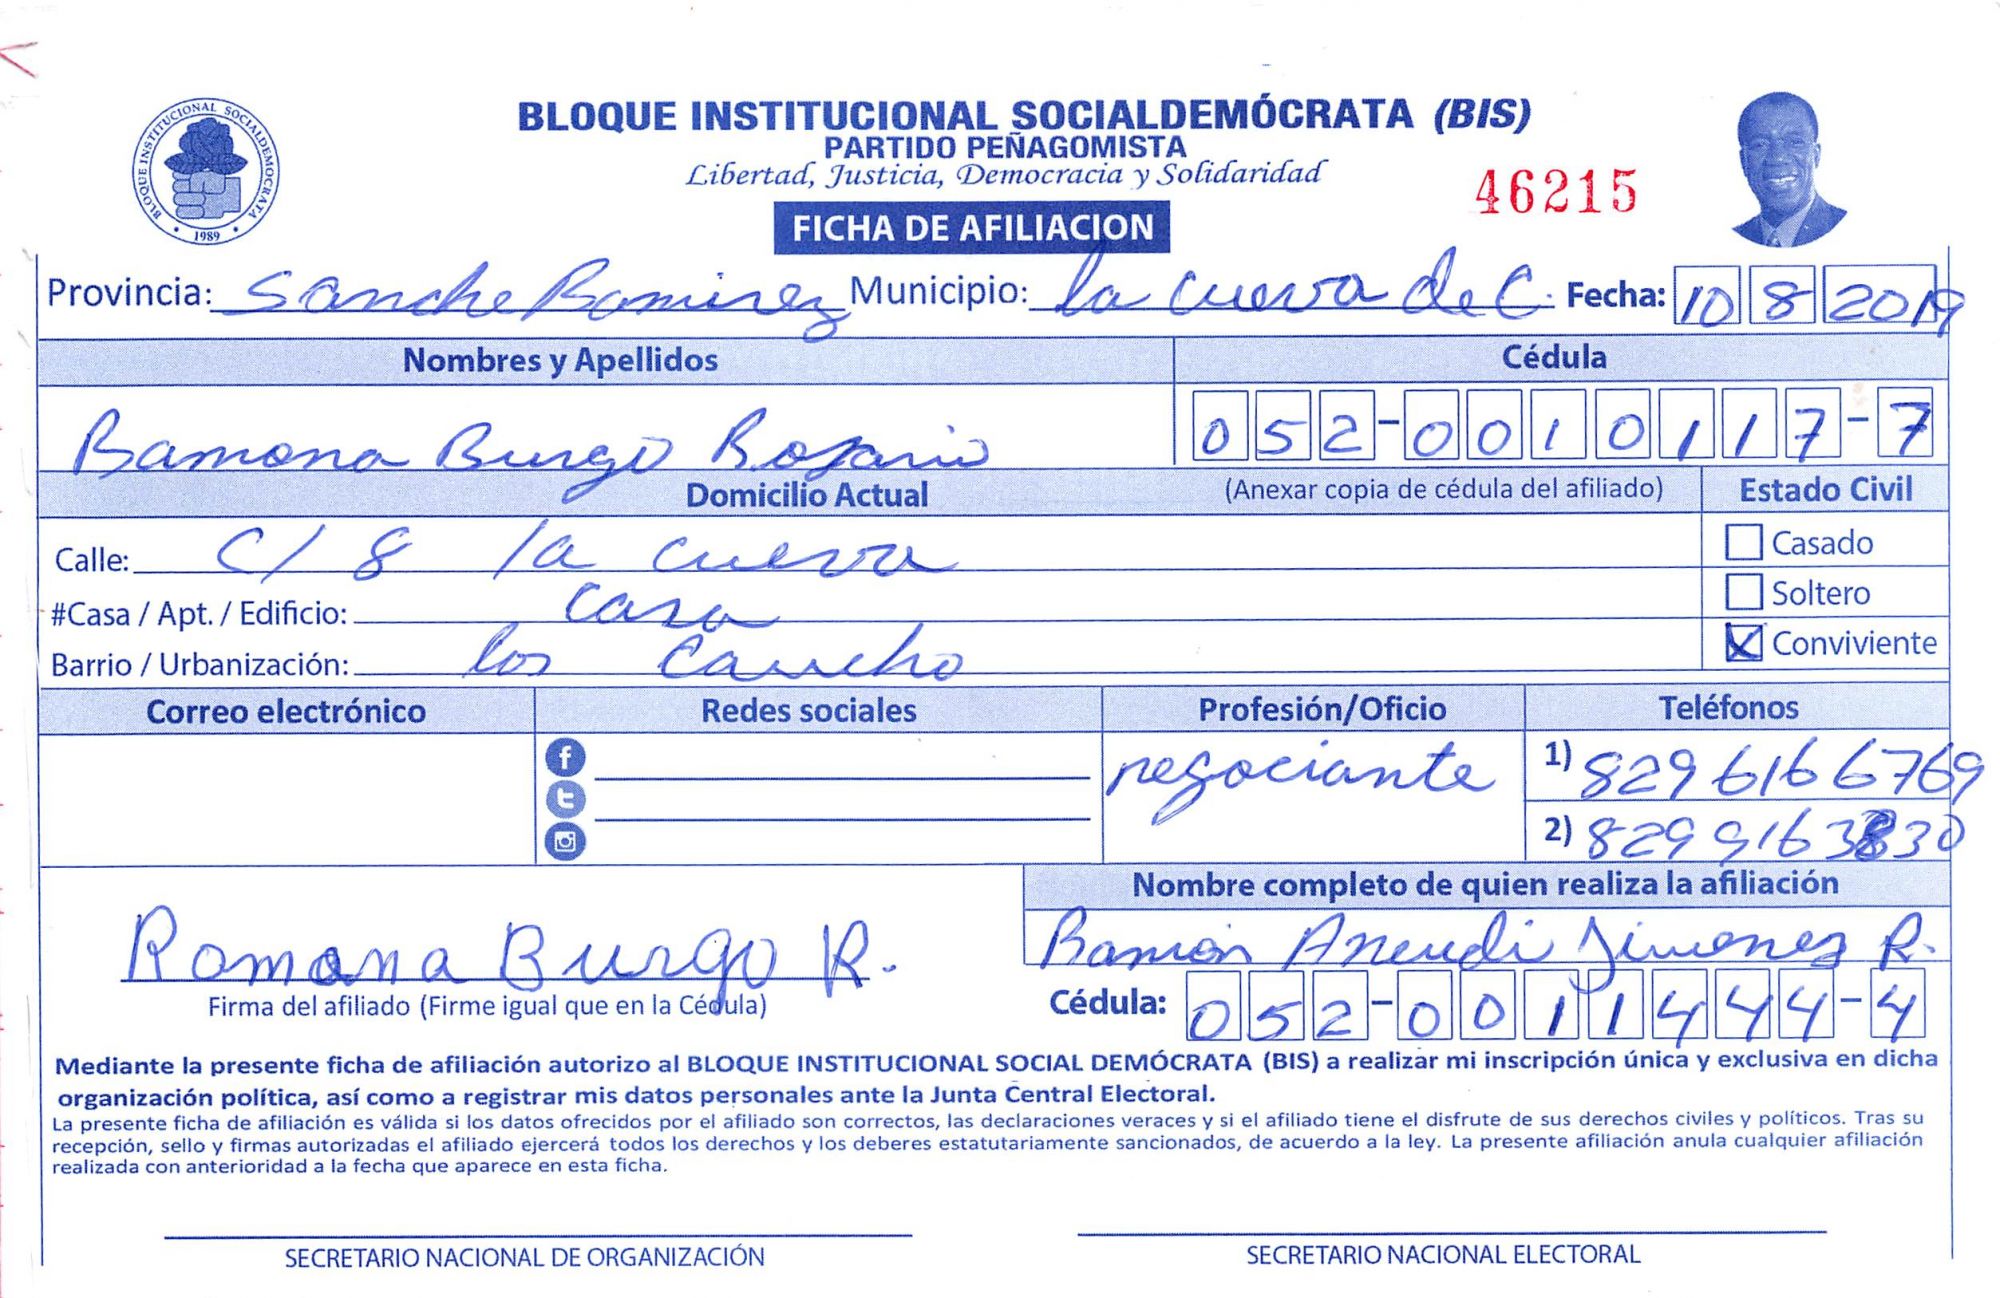 BLOQUE INSTITUCIONAL SOCIALDEMÓCRATA (BIS)
PARTIDO PEÑAGOMISTA
Libertad, Justicia, Democracia y Solidaridad
46215
FICHA DE AFILIACION
BLOQUE INSTITUCIONAL SOCIALDEMOCRATA
1989
Provincia: Sanche Ramirez Municipio: la cueva de C. Fecha: 10 8 2019
Nombres y Apellidos Cédula
Ramona Burgo Rosario 052-0010117-7
Domicilio Actual (Anexar copia de cédula del afiliado) Estado Civil
Calle: C/ 8 la cueva Casado
#Casa / Apt. / Edificio: casa Soltero
Barrio / Urbanización: los Caucho X Conviviente
Correo electrónico Redes sociales Profesión/Oficio Teléfonos
negociante 1) 829 616 6769
2) 829 916
Nombre completo de quien realiza la afiliación
Ramón Aneudi Jimenez R.
Romana Burgo R.
Firma del afiliado (Firme igual que en la Cédula) Cédula: 052-0011444-4
Mediante la presente ficha de afiliación autorizo al BLOQUE INSTITUCIONAL SOCIAL DEMÓCRATA (BIS) a realizar mi inscripción única y exclusiva en dicha
organización política, así como a registrar mis datos personales ante la Junta Central Electoral.
La presente ficha de afiliación es válida si los datos ofrecidos por el afiliado son correctos, las declaraciones veraces y si el afiliado tiene el disfrute de sus derechos civiles y políticos. Tras su
recepción, sello y firmas autorizadas el afiliado ejercerá todos los derechos y los deberes estatutariamente sancionados, de acuerdo a la ley. La presente afiliación anula cualquier afiliación
realizada con anterioridad a la fecha que aparece en esta ficha.
SECRETARIO NACIONAL DE ORGANIZACIÓN SECRETARIO NACIONAL ELECTORAL